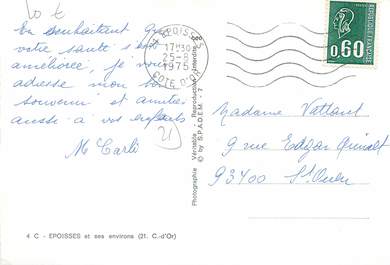 10 €
En souhaitant que
votre santé s'est
améliorée, je vous
adresse mon bon
souvenir et amitiés
aussi à vos enfants
M Carli
21
EPOISSES
17H30
25-8
1975
COTE D'OR
REPUBLIQUE FRANCAISE
0,60
Photographie Véritable - Reproduction interdite
© by S.P.A.D.E.M. - 7
Madame Vattant
9 rue Edgar Quinet
93400 St Ouen
4 C - EPOISSES et ses environs (21. C.-d'Or)